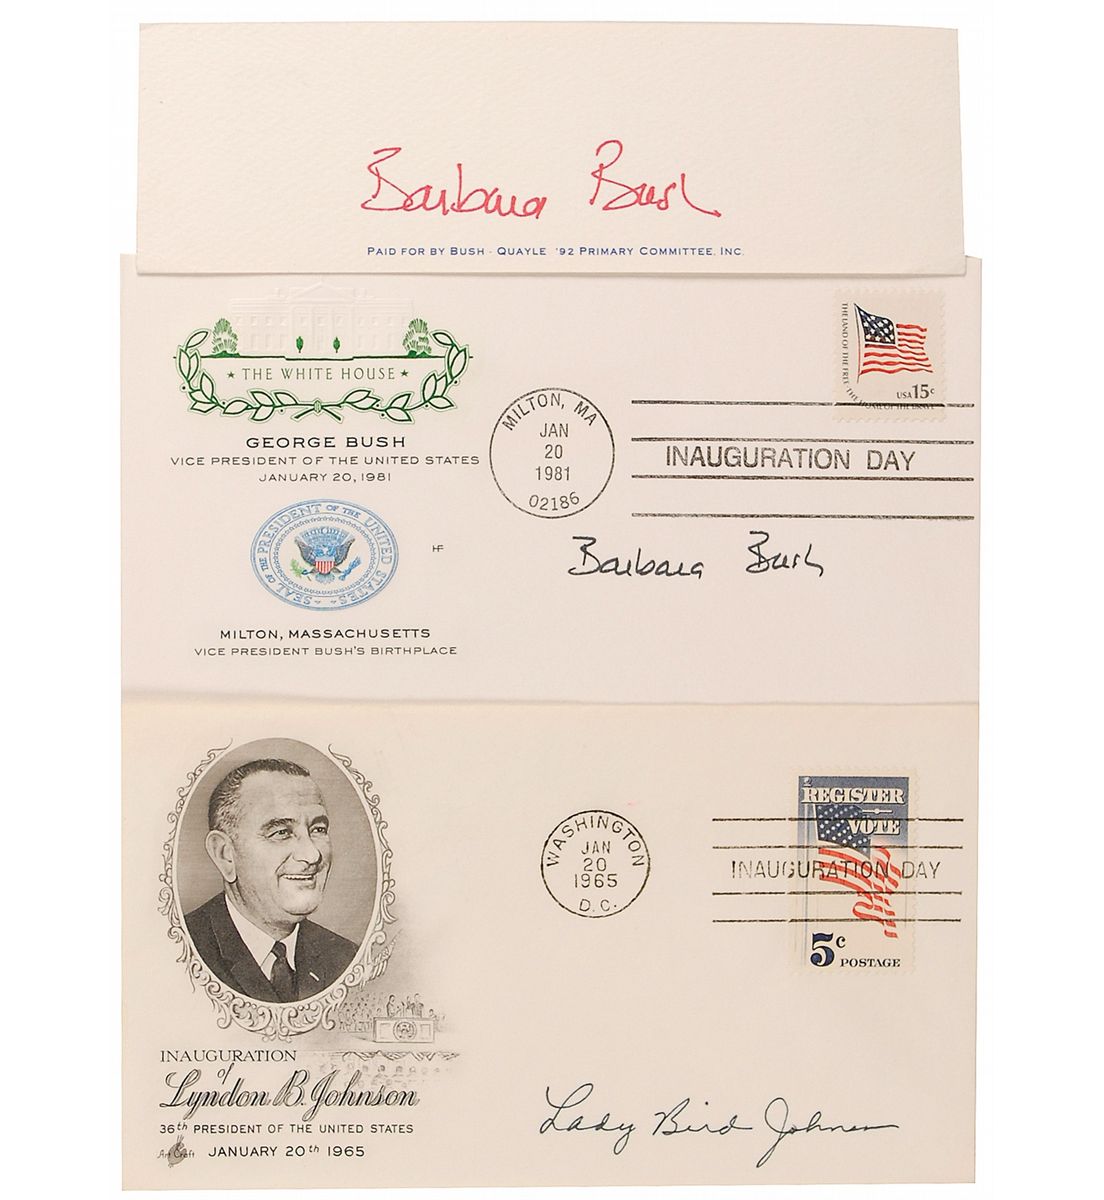 Barbara Bush
PAID FOR BY BUSH - QUAYLE '92 PRIMARY COMMITTEE, INC.
★ THE WHITE HOUSE ★
GEORGE BUSH
VICE PRESIDENT OF THE UNITED STATES
JANUARY 20, 1981
SEAL OF THE PRESIDENT OF THE UNITED STATES
HF
MILTON, MASSACHUSETTS
VICE PRESIDENT BUSH'S BIRTHPLACE
MILTON, MA
JAN
20
1981
02186
THE LAND OF THE FREE · THE HOME OF THE BRAVE
USA 15c
INAUGURATION DAY
Barbara Bush
INAUGURATION
of
Lyndon B. Johnson
36th PRESIDENT OF THE UNITED STATES
Art Craft
JANUARY 20th 1965
WASHINGTON
JAN
20
1965
D.C.
REGISTER
VOTE
INAUGURATION DAY
5c POSTAGE
Lady Bird Johnson